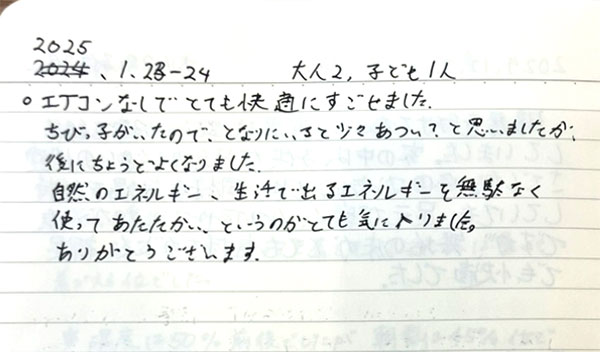 2025
2024、1.23-24 大人2,子ども1人
○エアコンなしでとても快適にすごせました.
ちびっ子がいたので、となりにいると少々あつい?と思いましたが、
後にちょうどよくなりました.
自然のエネルギー、生活で出るエネルギーを無駄なく
使ってあたたかい、というのがとても気に入りました。
ありがとうございます.